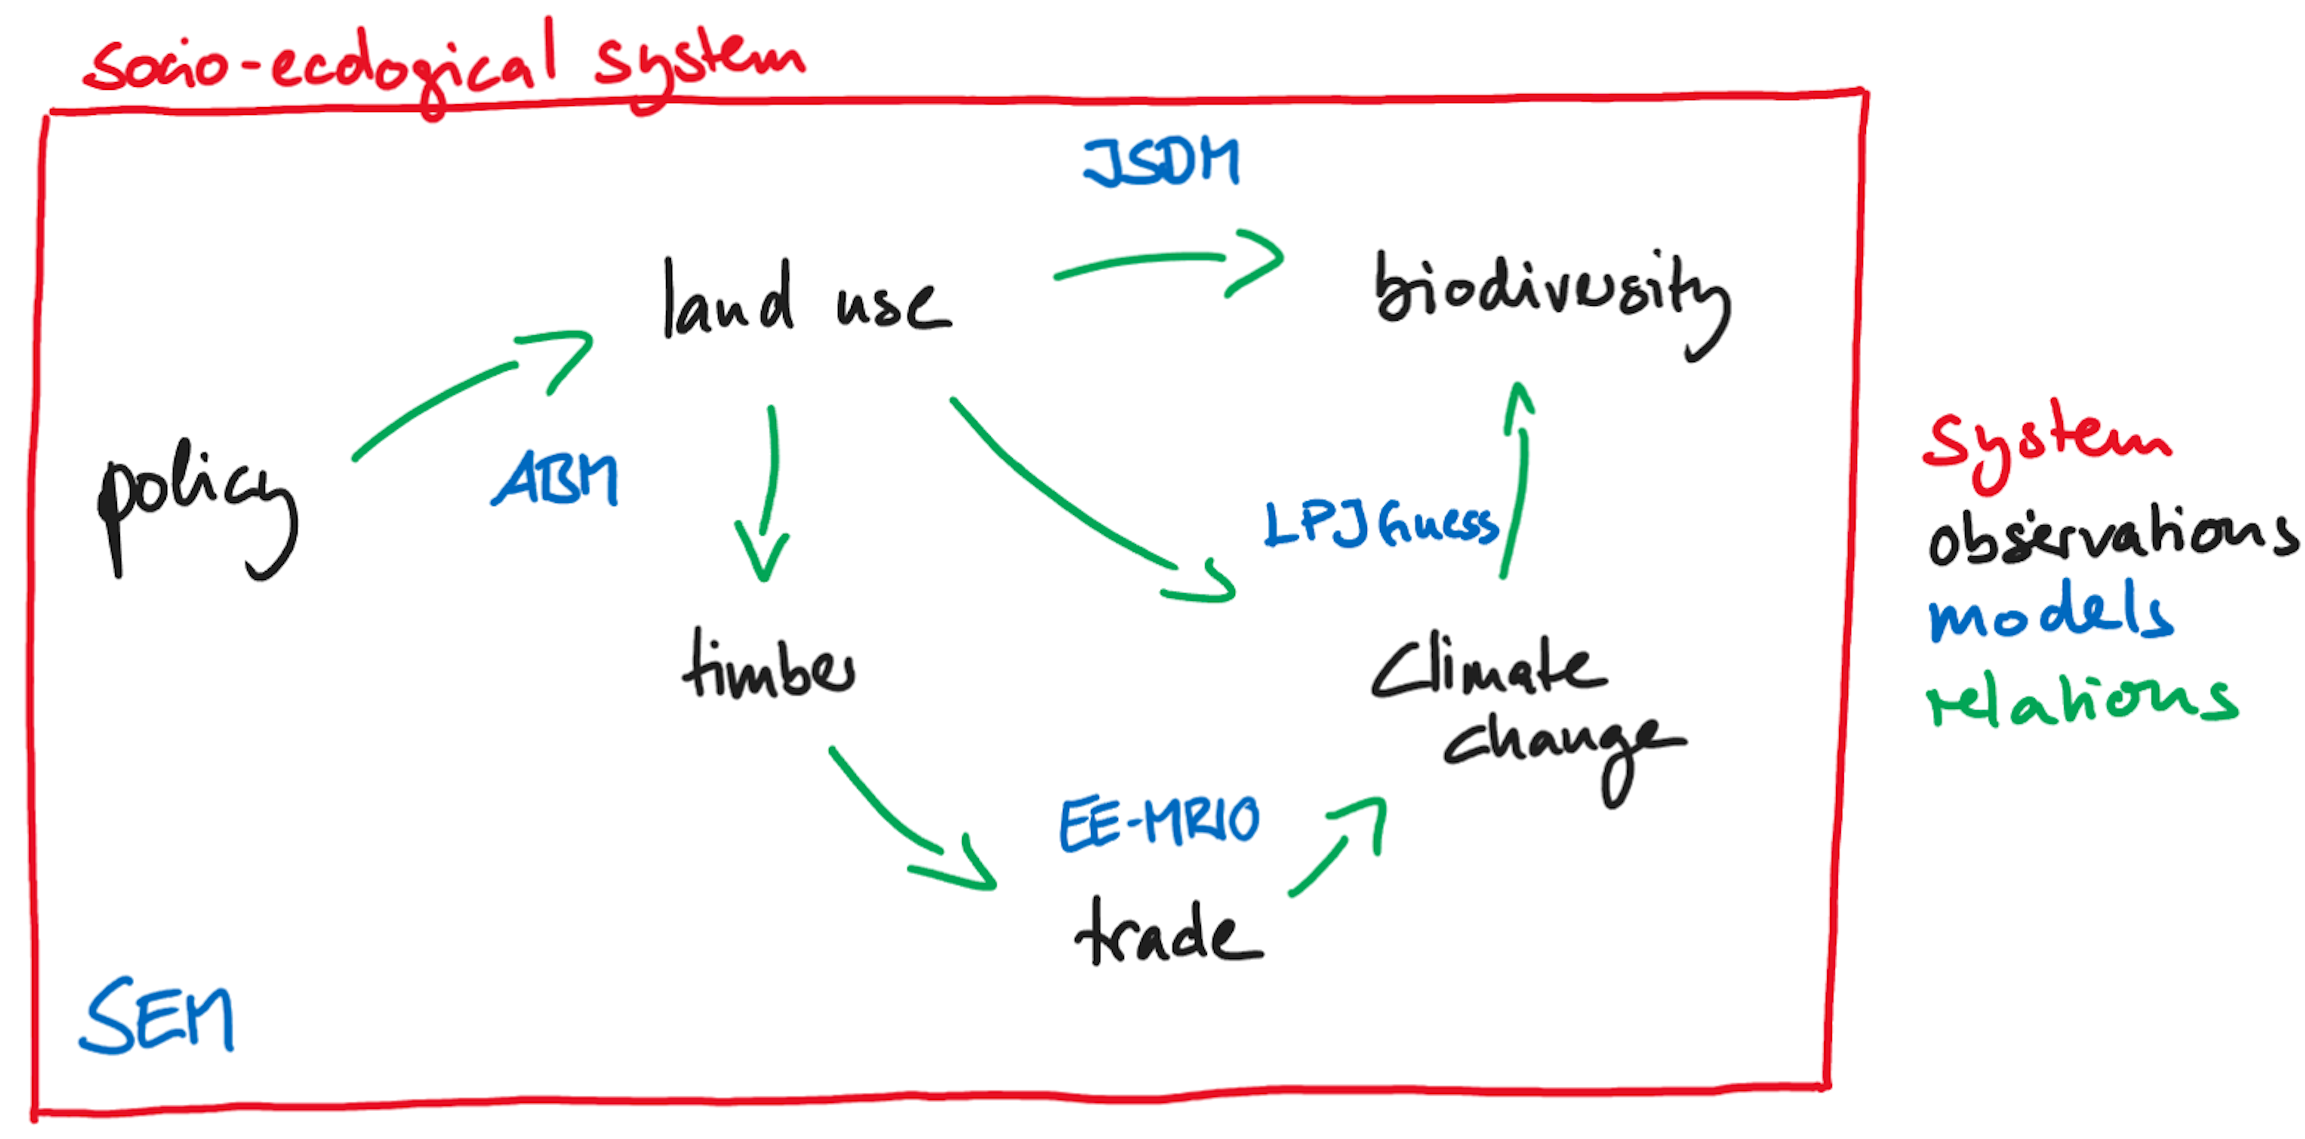 socio-ecological system
JSDM
land use
biodiversity
policy
ABM
LPJ Guess
timber
Climate
change
EE-MRIO
trade
SEM
system
observations
models
relations